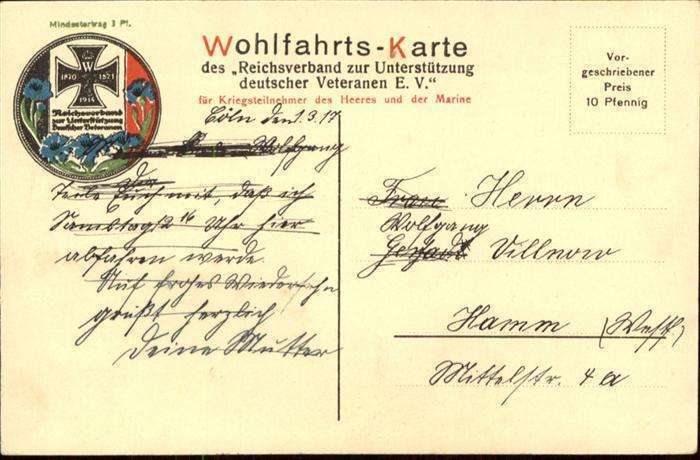 Mindestertrag 3 Pf.
W
1870 1871
1914
Reichsverband
zur Unterstützung
Deutscher Veteranen
Wohlfahrts-Karte
des „Reichsverband zur Unterstützung
deutscher Veteranen E. V."
für Kriegsteilnehmer des Heeres und der Marine
Vor-
geschriebener
Preis
10 Pfennig
Cöln den 1.3.17
Wolfgang
Teile Euch mit, daß ich
Samstag 12 16 Uhr hier
abfahren werde
Auf frohes Wiedersehn
grüßt herzlich
Deine Mutter
Frau Herrn
Wolfgang
Villnow
Hamm (Westf.)
Mittelstr. 4a